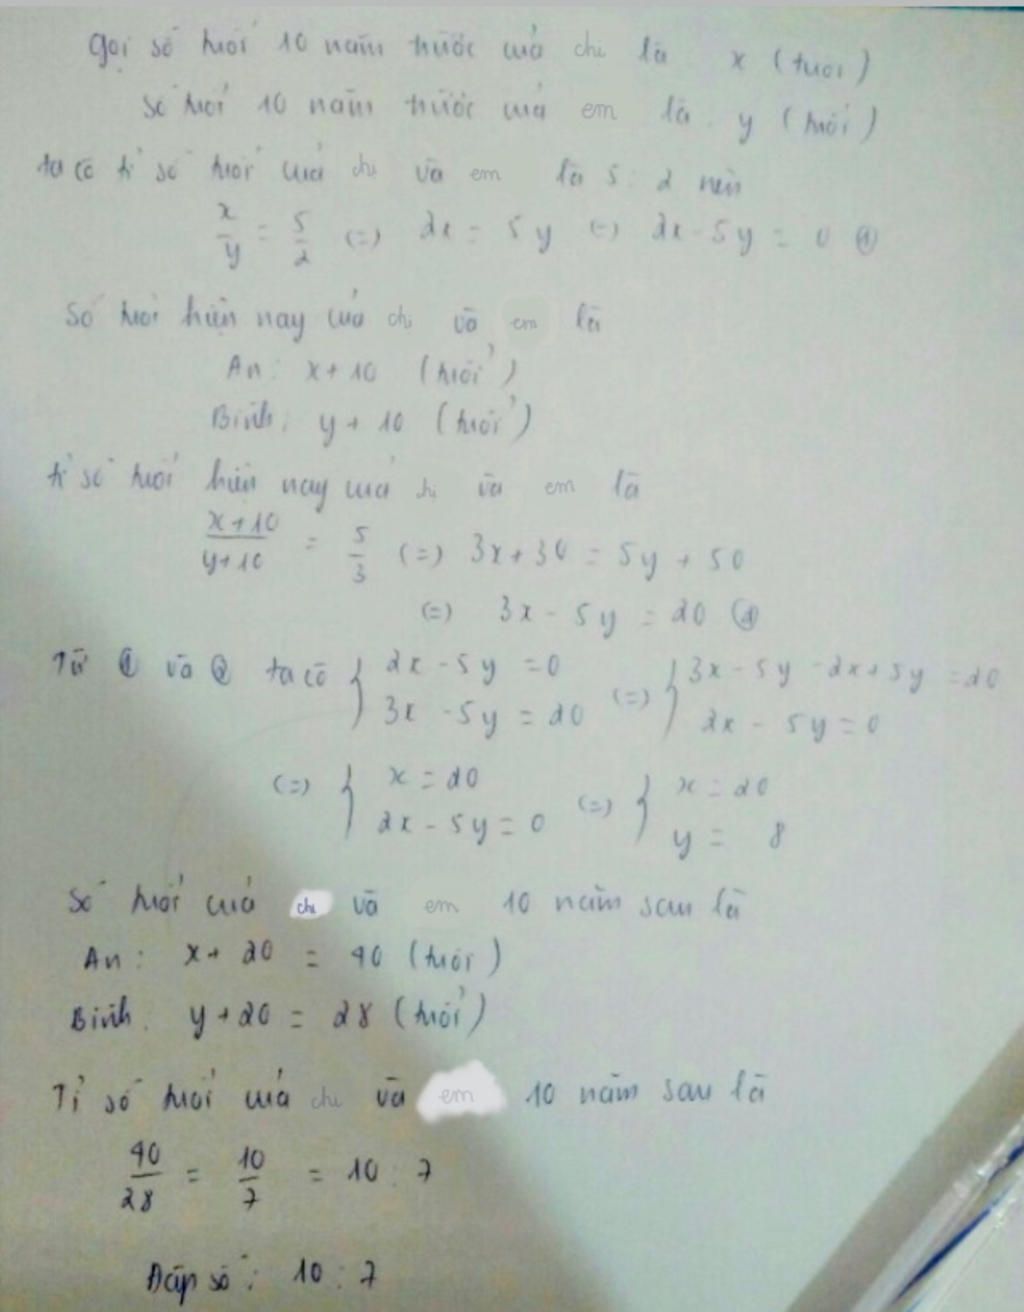 Gọi số tuổi 10 năm trước của chị là x (tuổi)
số tuổi 10 năm trước của em là y (tuổi)
ta có tỉ số tuổi của chị và em là 5 : 2 nên
x/y = 5/2 (=) 2x = 5y (=) 2x - 5y = 0 ①
Số tuổi hiện nay của chị và em là
An : x + 10 (tuổi)
Bình : y + 10 (tuổi)
tỉ số tuổi hiện nay của chị và em là
x+10/y+10 = 5/3 (=) 3x + 30 = 5y + 50
(=) 3x - 5y = 20 ②
Từ ① và ② ta có { 2x - 5y = 0 3x - 5y = 20 (=) { 3x - 5y - 2x + 5y = 20 2x - 5y = 0
(=) { x = 20 2x - 5y = 0 (=) { x = 20 y = 8
Số tuổi của chị và em 10 năm sau là
An : x + 20 = 40 (tuổi)
Bình : y + 20 = 28 (tuổi)
Tỉ số tuổi của chị và em 10 năm sau là
40/28 = 10/7 = 10 : 7
Đáp số : 10 : 7